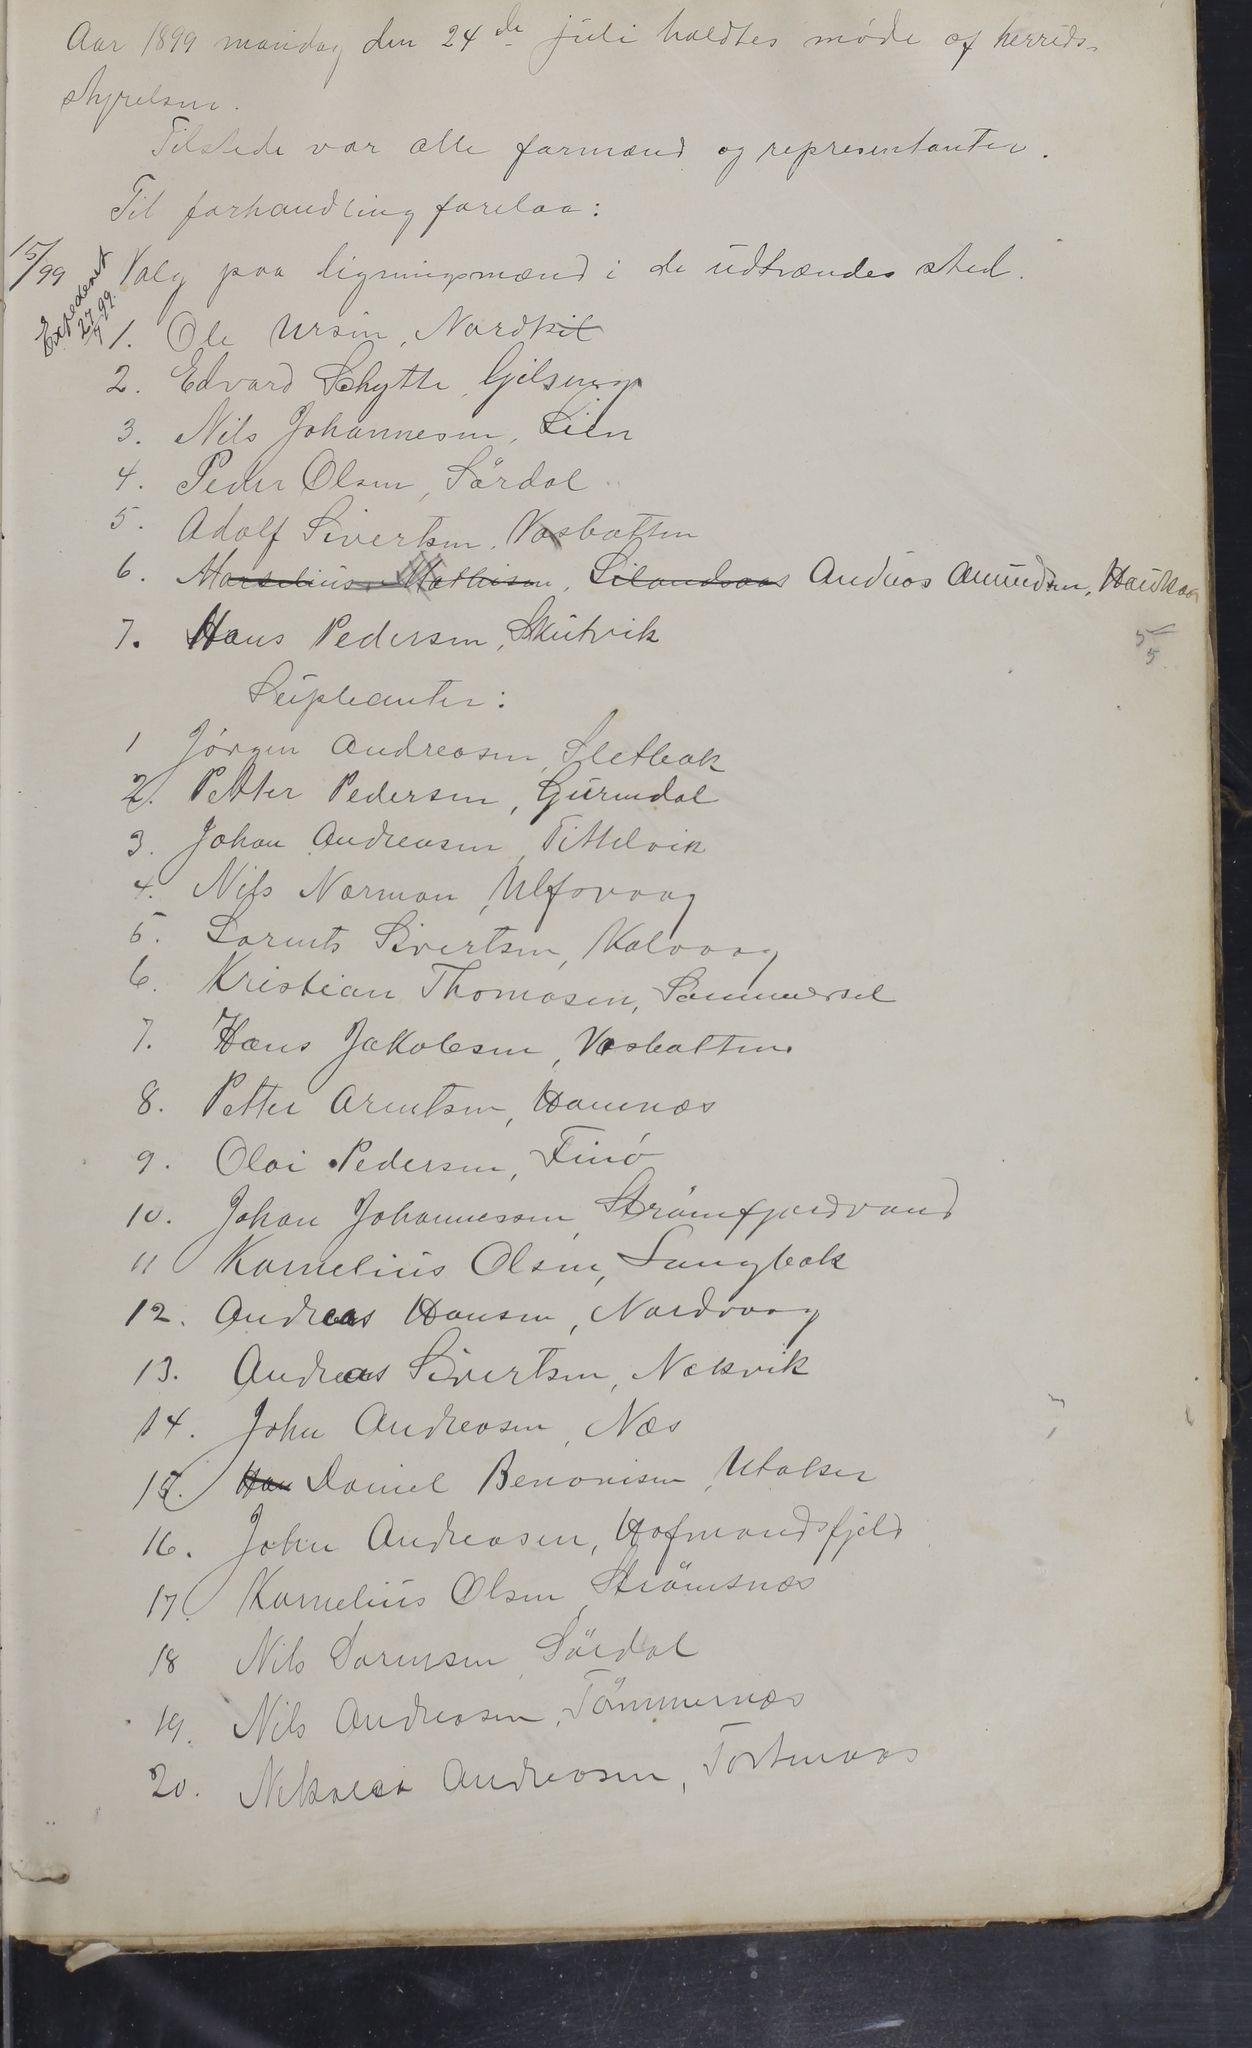 Aar 1899 mandag den 24de juli holdtes møde af herreds-
styrelsen.
Tilstede var alle formænd og representanter.
Til forhandling forelaa:
15/99 Valg paa ligningsmænd i de udtrændes sted.
Expederet 27/7 99.
1. Ole Ursin, Nordkil
2. Edvard Schytte,
3. Nils Johannesen, Lien
4. Peder Olsen, Sørdal
5. Adolf Sivertsen, Vasbotten
6. Marselius Mathisen, Andreas Amundsen,
7. Hans Pedersen, Skutvik
5/5
Supleanter:
1 Jørgen Andreasen, Sletbak
2. Petter Pedersen, Gurendal
3. Johan Andreasen, Tittelvik
4. Nils Norman, Ulfsvaag
5. Lorents Sivertsen, Kalvaag
6. Kristian Thomasen, Sommersel
7. Hans Jakobsen, Vasbotten
8. Petter Arentsen, Hamnæs
9. Oloi Pedersen, Finø
10. Johan Johannessen, Strømfjordvand
11 Kornelius Olsen, Langbak
12. Andreas Hansen, Nordvaag
13. Andreas Sivertsen, Nekvik
14. John Andreasen, Næs
15. Han Daniel Benonisen,
16. John Andreasen, Hofmandsfjeld
17. Kornelius Olsen, Strømsnæs
18 Nils Dorensen, Sørdal
19. Nils Andreasen, Tømmernæs
20. Nikolai Andreasen, Tortenaas